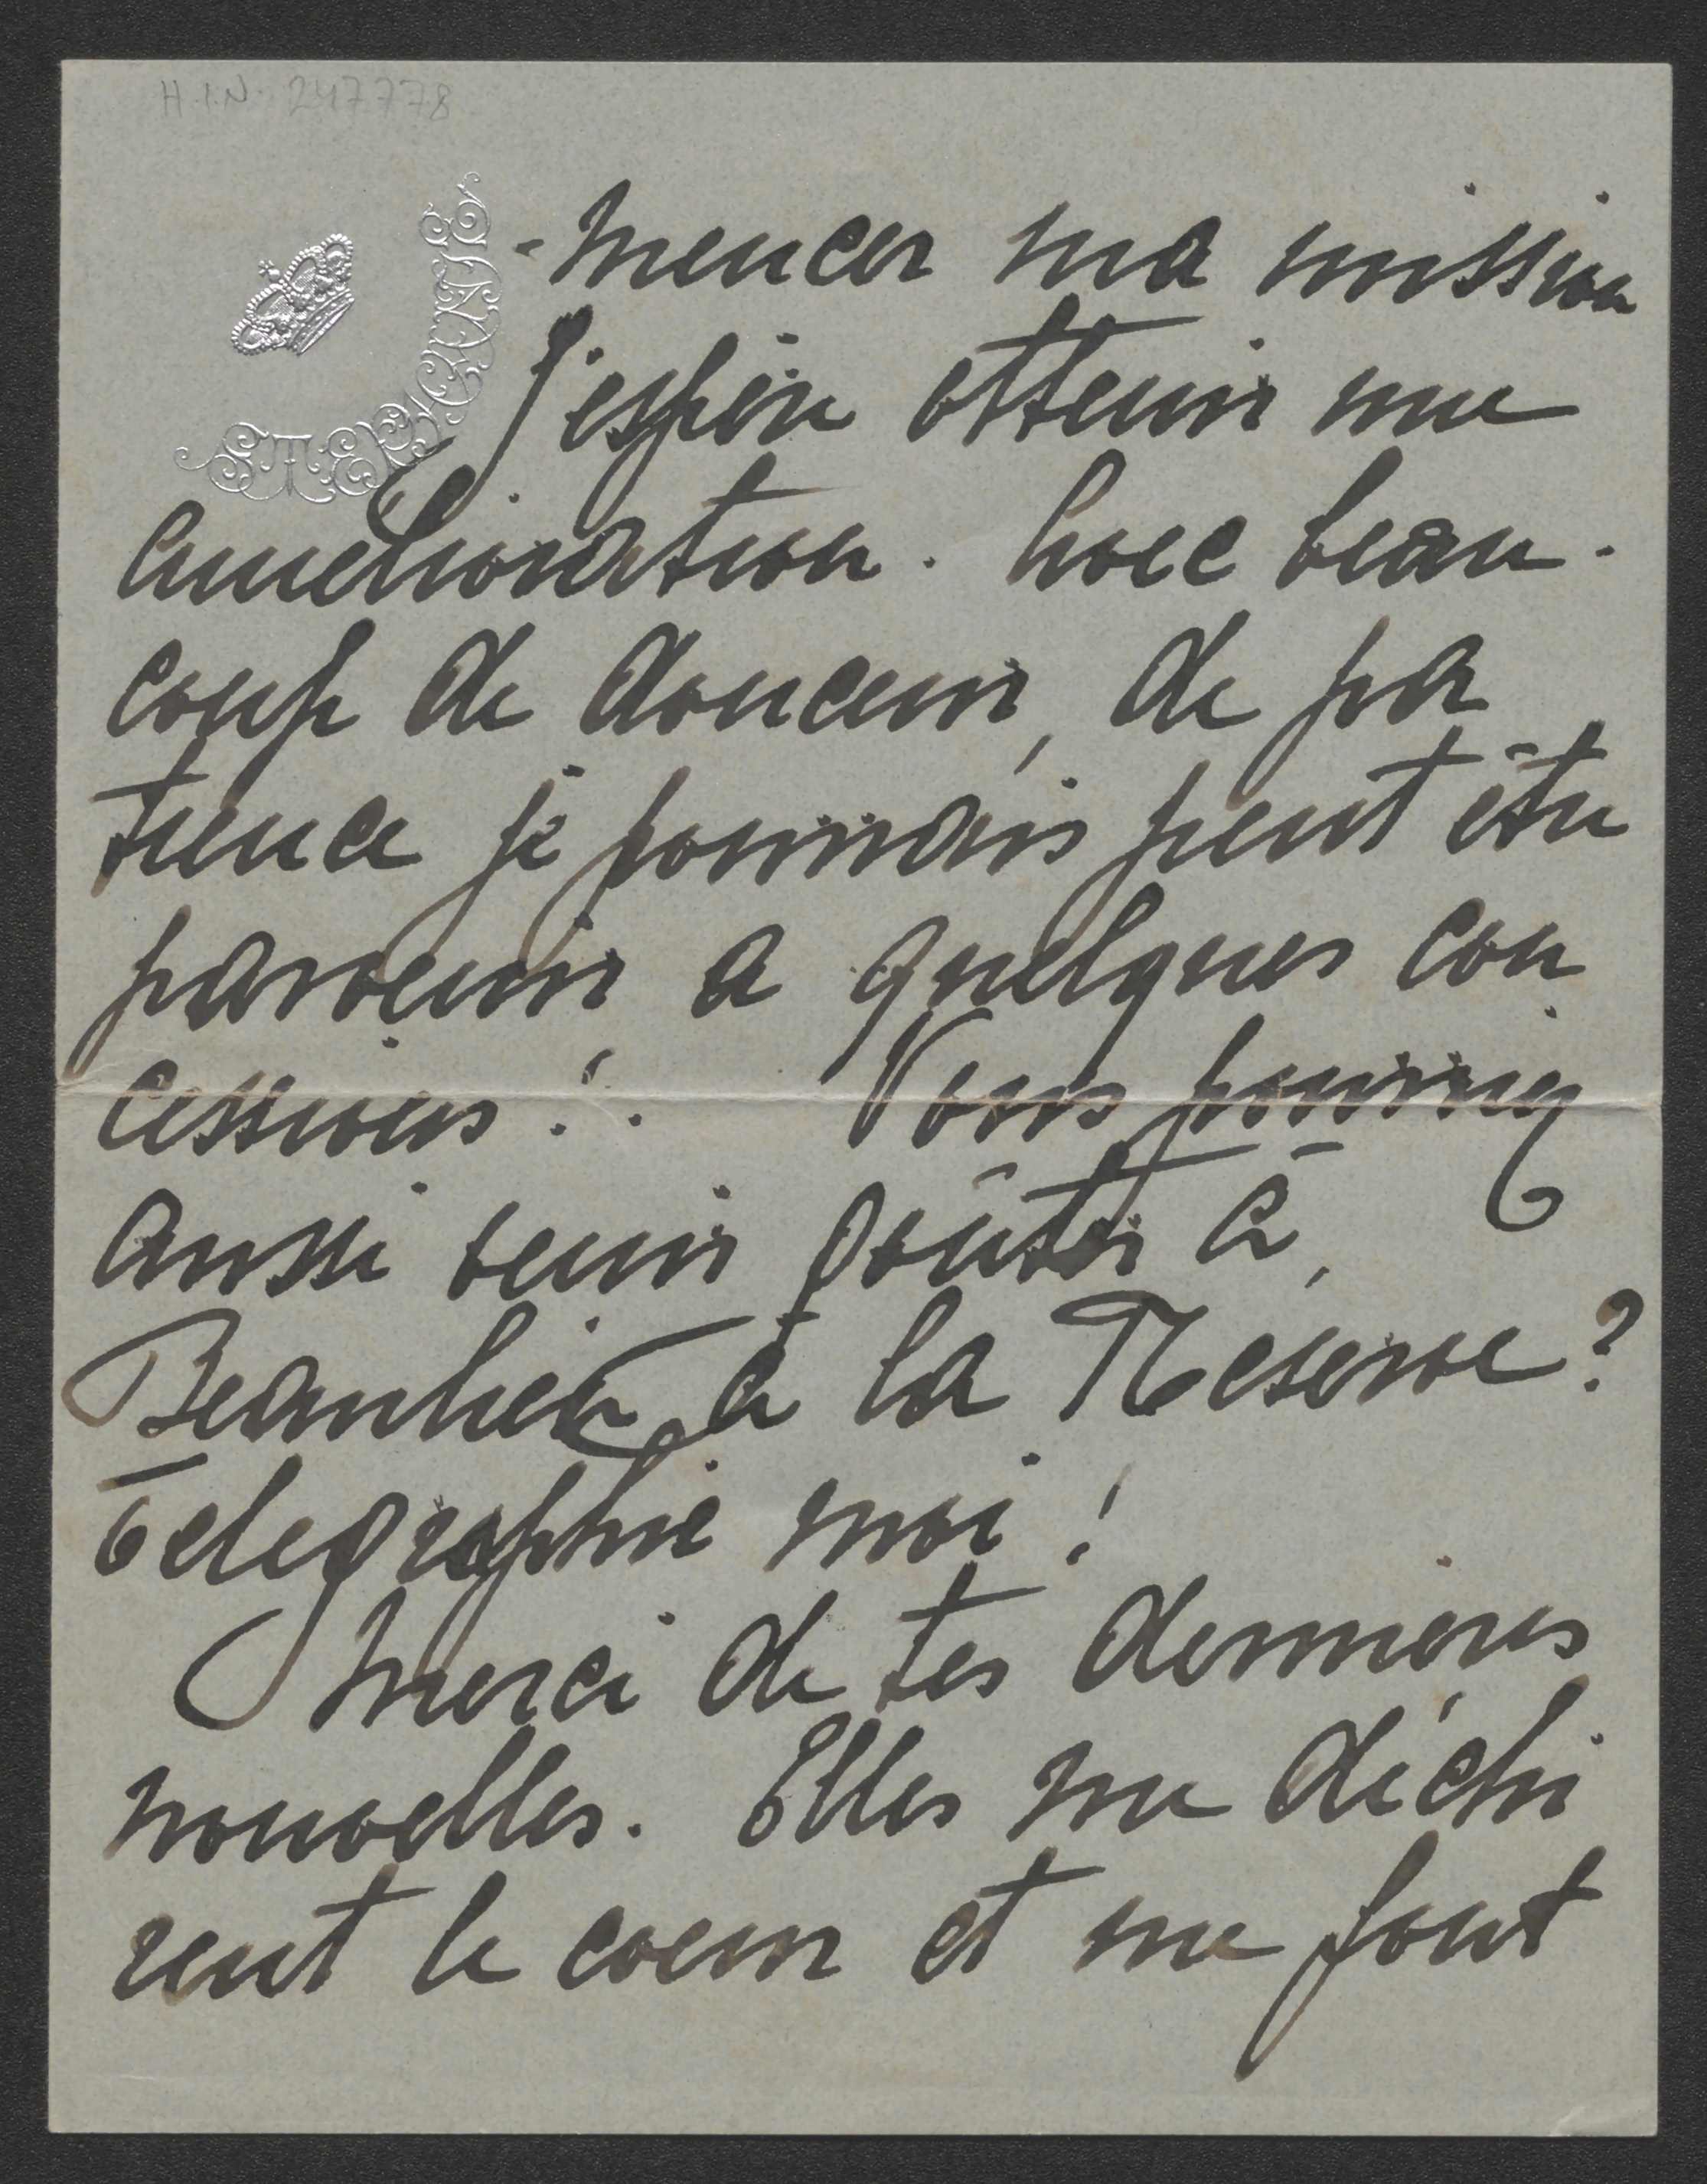 H.I.N. 247778
STEPHANIE
-mencer ma mission
J'espère obtenir une
amélioration. Avec beau-
coup de douceur, de pa
tience je pourrais peut être
parvenir a quelques con
cessions!. Vous pourriez
aussi venir goûter à
Beaulieu à la Réserve?
Télégraphie moi!
Merci de tes dernieres
nouvelles. Elles me déchi
rent le coeur et me font